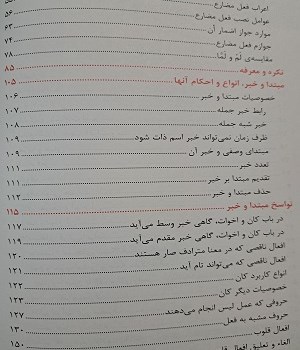 اعراب فعل مضارع
عوامل نصب فعل مضارع ۵۶
موارد جواز اضمار آن ۶۳
جوازم فعل مضارع ۷۴
مقایسه‌ی لَمْ و لَمَّا ۷۸
نکره و معرفه ۸۵
مبتدا و خبر، انواع و احکام آنها ۱۰۵
خصوصیات مبتدا و خبر ۱۰۶
رابط خبر جمله ۱۰۷
خبر شبه جمله ۱۰۸
ظرف زمان نمی‌تواند خبر اسم ذات شود ۱۰۹
مبتدای وصفی و خبر آن ۱۰۹
تعدد خبر ۱۱۱
تقدیم مبتدا بر خبر ۱۱۱
حذف مبتدا و خبر ۱۱۳
نواسخ مبتدا و خبر ۱۱۵
در باب کان و اخوات، گاهی خبر وسط می‌آید ۱۱۷
در باب کان و اخوات، گاهی خبر مقدم می‌آید ۱۱۹
افعال ناقصی که در معنا مترادف صار هستند ۱۲۰
افعال ناقصی که می‌تواند تام آید ۱۲۱
انواع کاربرد کان ۱۲۲
خصوصیات دیگر کان ۱۲۳
حروفی که عمل لیس انجام می‌دهند ۱۲۷
حروف مشبه به فعل ۱۳۰
افعال قلوب ۱۵۰
الغاء و تعلیق افعال